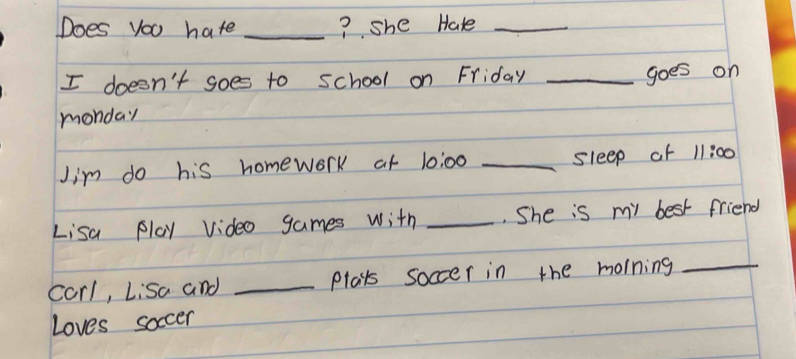 Does you hate ______ ?. She Hate ______
I doesn't goes to school on Friday ______ goes on
monday
Jim do his homework at 10:00 ______ sleep at 11:00
Lisa play video games with ______. She is my best friend
Carl, Lisa and ______ plays soccer in the morning ______
Loves soccer